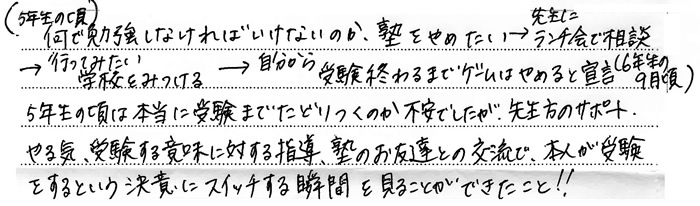 (5年生の頃)
何で勉強しなければいけないのか、塾をやめたい→先生にランチ会で相談
→行ってみたい学校をみつける →自分から受験終わるまでゲームはやめると宣言(6年生の9月頃)
5年生の頃は本当に受験までたどりつくのか不安でしたが、先生方のサポート、
やる気、受験する意味に対する指導、塾のお友達との交流で、本人が受験
をするという決意にスイッチする瞬間を見ることができたこと!!